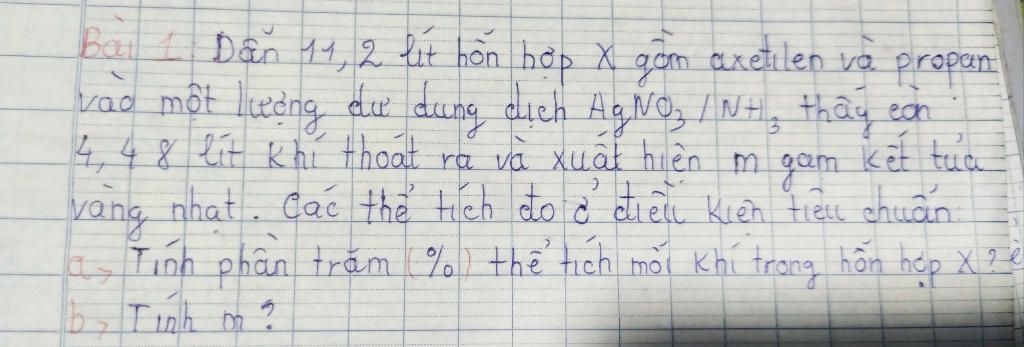 Bài 1 Dẫn 11,2 lít hỗn hợp X gồm axetilen và propan
vào một lượng dư dung dịch AgNO₃/NH₃ thấy còn
4,48 lít khí thoát ra và xuất hiện m gam kết tủa
vàng nhạt. Các thể tích đo ở điều kiện tiêu chuẩn.
a, Tính phần trăm (%) thể tích mỗi khí trong hỗn hợp X?
b, Tính m?